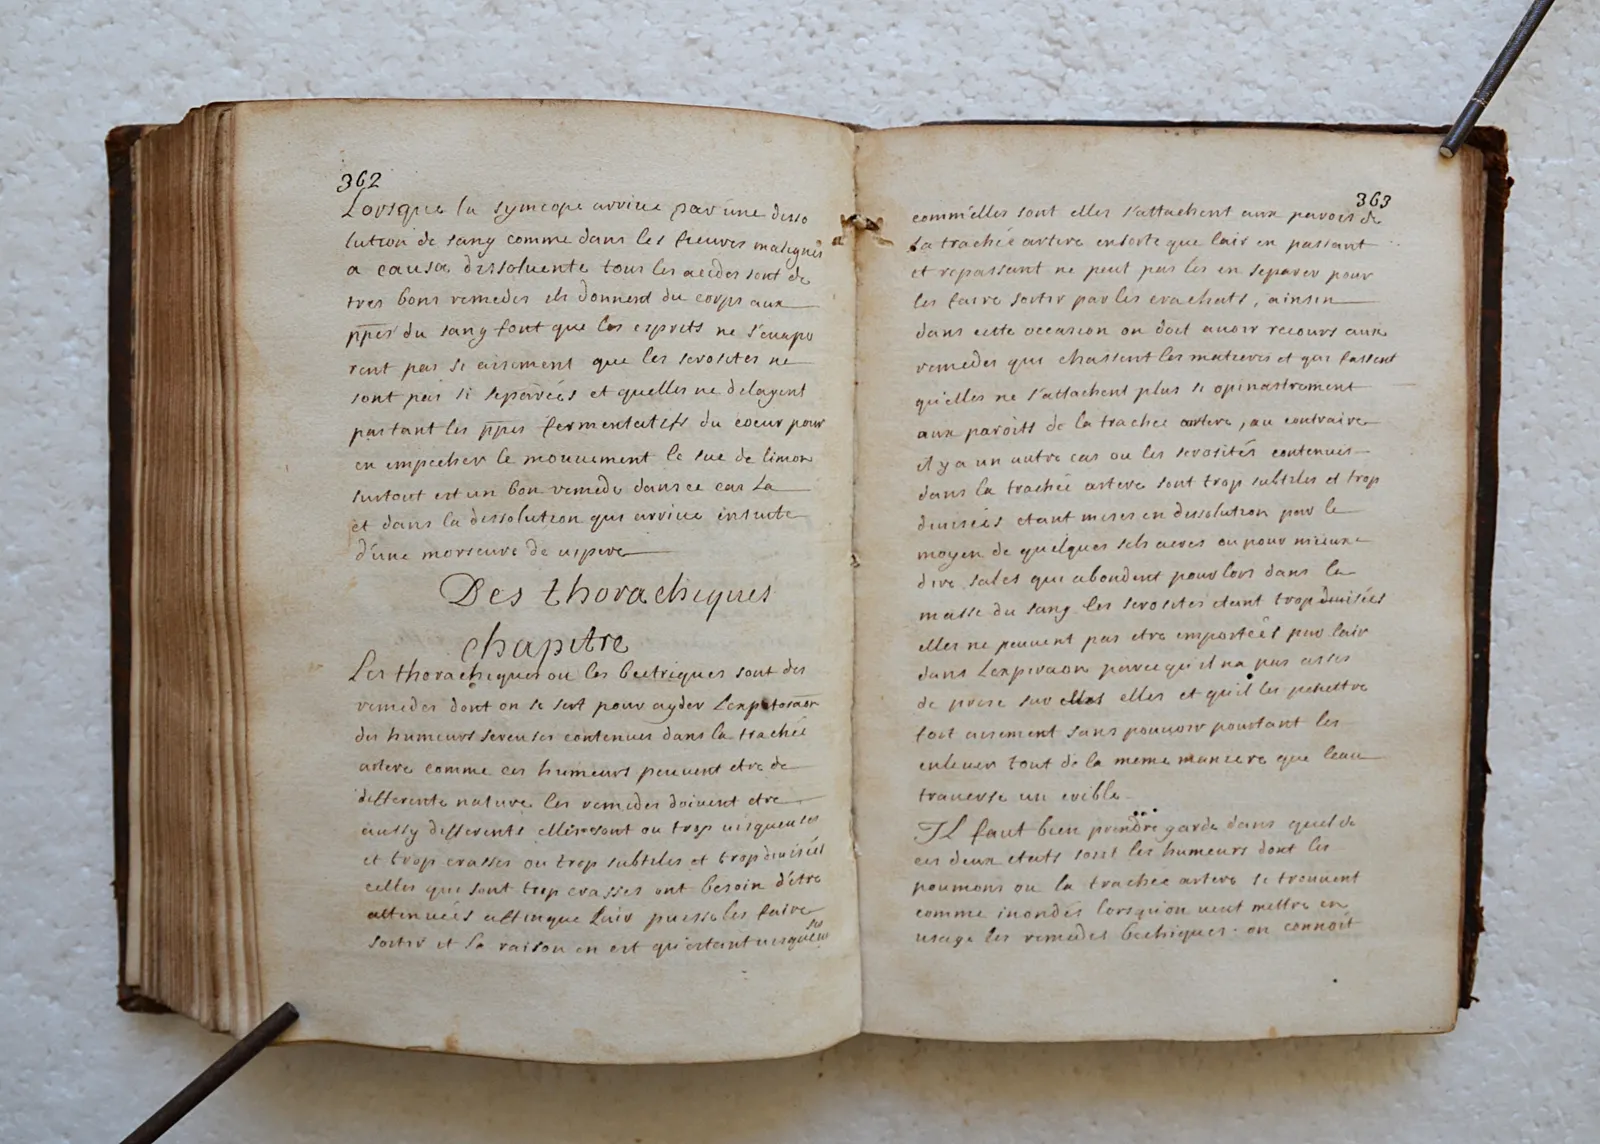 362
Lorsque la syncope arrive par une disso
lution de sang comme dans les fieuvres malignes
a causa dissoluente tous les acides sont de
tres bons remedes ils donnent du corps aux
ppes du sang font que les esprits ne s'euapo
rent pas si aisement que les serosites ne
sont pas si separées et quelles ne delayent
partant les ppes fermentatifs du coeur pour
en empecher le mouuement le suc de limon
surtout est un bon remede dans ce cas La
et dans la dissolution qui arriue ensuite
d'une morseure de uipere
Des thorachiques
chapitre
Les thorachiques ou les bectriques sont des
remedes dont on se sert pour ayder Lexpetoraon
des humeurs sereuses contenues dans la trachée
artere comme ces humeurs peuuent etre de
differente nature les remedes doiuent etre
aussy differents elles sont ou trop uisqueuses
et trop crasses ou trop subtiles et trop diuisées
celles qui sont trop crasses ont besoin d'être
attenuées affinque lair puisse les faire
sortir et la raison en est qu'estant uisqueuses
363
comm'elles sont elles s'attachent aux parois de
La trachée artere ensorte que lair en passant
et repassant ne peut pas les en separer pour
les faire sortir par les crachats, ainsin
dans cette occasion on doit auoir recours aux
remedes qui chassent les matieres et qui fassent
qu'elles ne s'attachent plus si opinastrement
aux paroits de la trachée artere, au contraire
il y a un autre cas ou les serosités contenues
dans la trachée artere sont trop subtiles et trop
diuisées etant mises en dissolution par le
moyen de quelques sels acres ou pour mieux
dire sales qui abondent pour lors dans la
masse du sang les serosites etant trop diuisées
elles ne peuuent pas etre emportées par lair
dans Lexpiraon parce qu'il na pas asses
de prise sur elles et qu'il les penettre
fort aisement sans pouuoir pourtant les
enleuer tout de la meme maniere que leau
trauerse un crible
Il faut bien prendre garde dans quel de
ces deux etats sont les humeurs dont les
poumons ou la trachée artere se treuuent
comme inondés lorsqu'on ueut mettre en
usage les remedes bechiques. on connoit